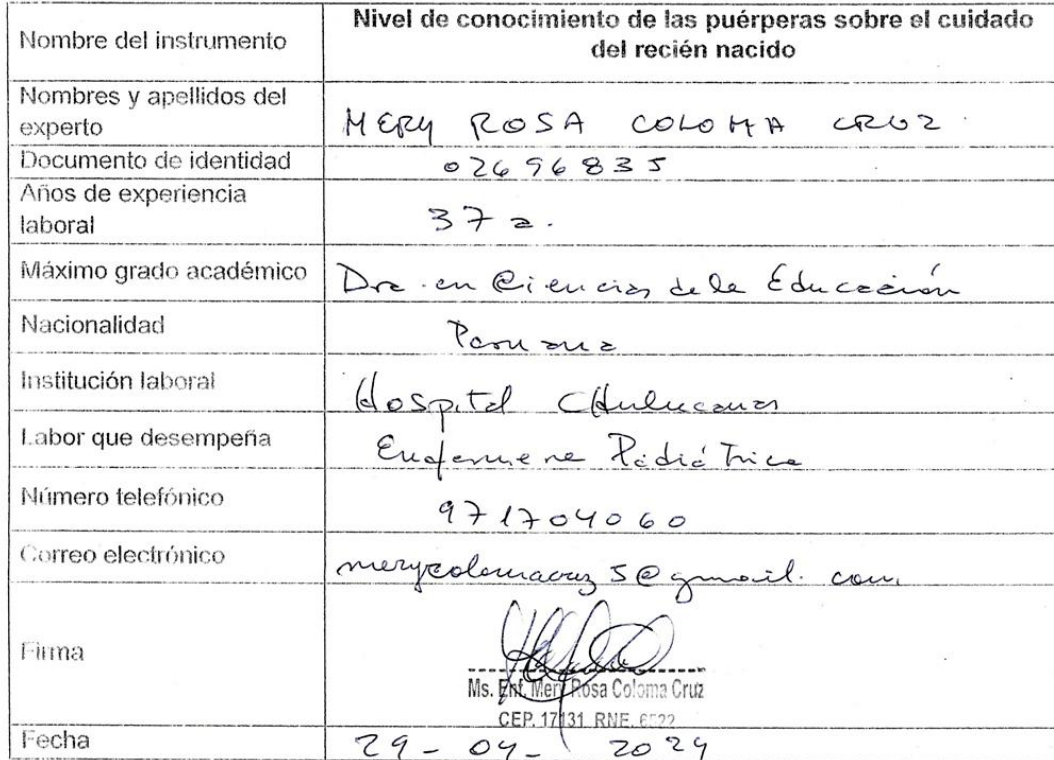 Nombre del instrumento
Nivel de conocimiento de las puérperas sobre el cuidado
del recién nacido
Nombres y apellidos del
experto
MERY ROSA COLOMA CRUZ
Documento de identidad
02696835
Años de experiencia
laboral
37 a.
Máximo grado académico
Dra. en Ciencias de la Educación
Nacionalidad
Peruana
Institución laboral
Hospital CHulucanas
Labor que desempeña
Enfermera Pediátrica
Número telefónico
971704060
Correo electrónico
merycolomacruz5@gmail.com
Firma
Ms. Enf. Mery Rosa Coloma Cruz
CEP. 17131 RNE.
Fecha
29-04-2024